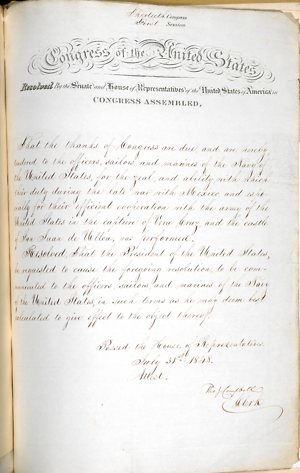 Thirtieth Congress
First Session
Congress of the United States,
Resolved By the Senate and House of Representatives of the United States of America in
CONGRESS ASSEMBLED,
That the thanks of Congress are due, and are hereby
tendered to the officers, sailors and marines of the Navy of
the United States, for the zeal and ability with which
their duty during the late war with Mexico, and espe-
cially for their official cooperation with the army of the
United States in the capture of Vera Cruz, and the castle
of San Juan de Ulloa, was performed.
Resolved, That the President of the United States,
requested to cause the foregoing resolution, to be com-
municated to the officers sailors and marines of the Navy
of the United States, in such terms as he may deem best
calculated to give effect to the object thereof.
Passed the House of Representatives
July 31st 1848.
Attest.
Tho J Campbell
Clerk